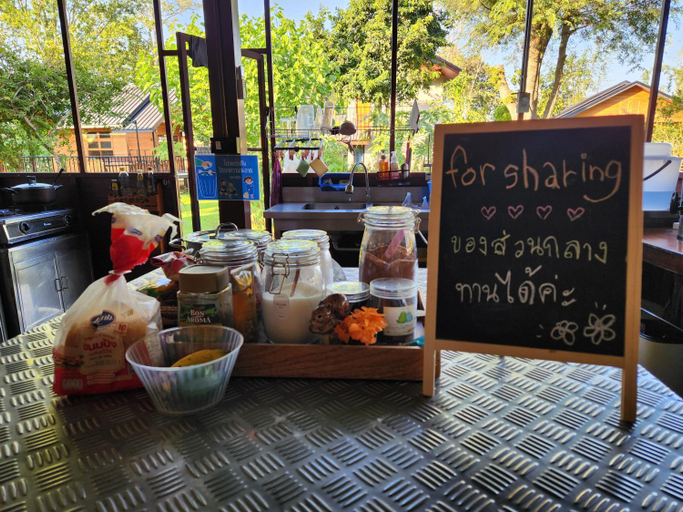 for sharing
ของส่วนกลาง
ทานได้ค่ะ
BON
AROMA